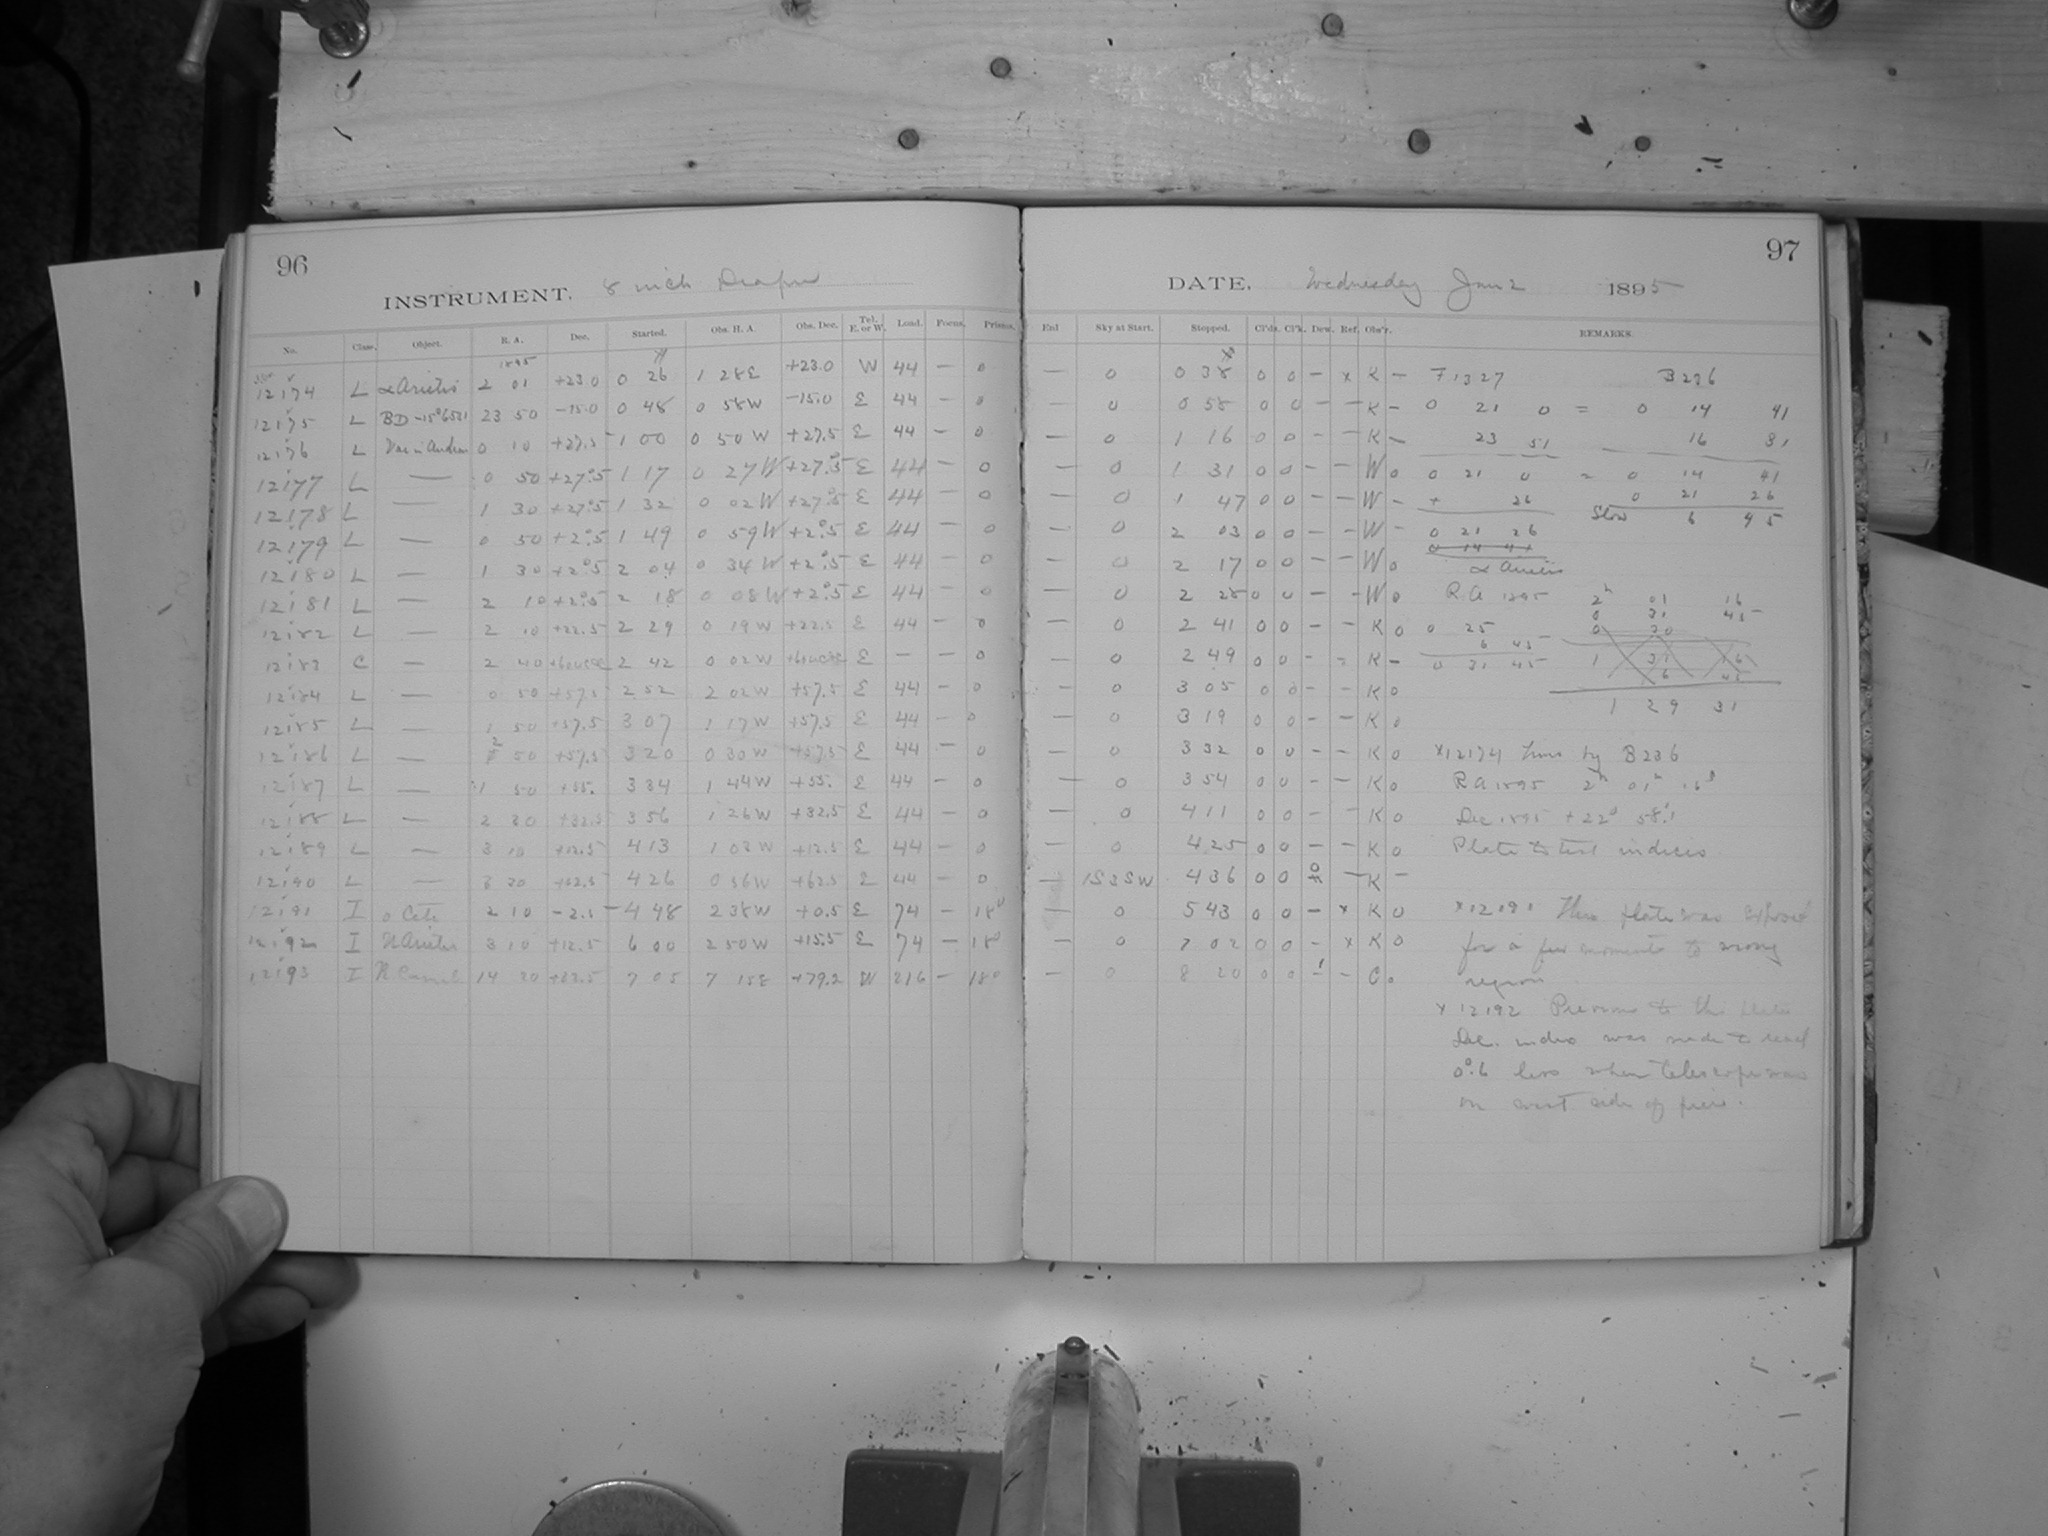 96
INSTRUMENT. 8 inch Draper
No. Class. Object. R. A. Dec. Started. Obs. H. A. Obs. Dec. Tel. E. or W. Load. Focus. Prisms.
1895
12174 L α Arietis 2 01 +23.0 0 26 1 28 E +23.0 W 44 — 0
12175 L BD -15°6531 23 50 -15.0 0 48 0 58 W -15.0 E 44 — 0
12176 L Var in Androm 0 10 +27.5 1 00 0 50 W +27.5 E 44 — 0
12177 L — 0 50 +27°.5 1 17 0 27 W +27°.5 E 44 — 0
12178 L — 1 30 +27°.5 1 32 0 02 W +27°.5 E 44 — 0
12179 L — 0 50 +2°.5 1 49 0 59 W +2°.5 E 44 — 0
12180 L — 1 30 +2°.5 2 04 0 34 W +2°.5 E 44 — 0
12181 L — 2 10 +2°.5 2 18 0 08 W +2°.5 E 44 — 0
12182 L — 2 10 +22.5 2 29 0 19 W +22.5 E 44 — 0
12183 C — 2 40 2 42 0 02 W E — — 0
12184 L — 0 50 +57.5 2 52 2 02 W +57.5 E 44 — 0
12185 L — 1 50 +57.5 3 07 1 17 W +57.5 E 44 — 0
12186 L — 2 50 +57.5 3 20 0 30 W +57.5 E 44 — 0
12187 L — 1 50 +55. 3 34 1 44 W +55. E 44 — 0
12188 L — 2 30 +32.5 3 56 1 26 W +32.5 E 44 — 0
12189 L — 3 10 +12.5 4 13 1 03 W +12.5 E 44 — 0
12190 L — 3 30 +62.5 4 26 0 56 W +62.5 E 44 — 0
12191 I o Ceti 2 10 -2.5 4 48 2 38 W +0.5 E 74 — 180
12192 I N Arietis 3 10 +12.5 6 00 2 50 W +15.5 E 74 — 180
12193 I N Camel 14 20 7 05 7 15 E +79.2 W 216 — 180
97
DATE. Wednesday Jan 2 1895
Enl Sky at Start. Stopped. Cl'ds. Cl'k. Dew. Ref. Obs'r. REMARKS.
— 0 0 38 0 0 — x K — F1327 B236
— 0 0 58 0 0 — — K — 0 21 0 = 0 14 41
— 0 1 16 0 0 — — K — 23 51 16 31
— 0 1 31 0 0 — — W 0 0 21 0 = 0 14 41
— 0 1 47 0 0 — — W — + 26 0 21 26
Slow 6 45
— 0 2 03 0 0 — — W — 0 21 26
0 14 41
— 0 2 17 0 0 — — W 0 α Arietis
— 0 2 28 0 0 — — W 0 R.A 1895 2h 01 16
0 31 45
— 0 2 41 0 0 — — K 0 0 25 0 30
6 45
— 0 2 49 0 0 — — K — 0 31 45 1 31 16
6 45
— 0 3 05 0 0 — — K 0 1 29 31
— 0 3 19 0 0 — — K 0
— 0 3 32 0 0 — — K 0 x12174 Time by B236
— 0 3 54 0 0 — — K 0 RA 1895 2h 01m 16s
— 0 4 11 0 0 — — K 0 Dec 1895 +22° 58'.1
— 0 4 25 0 0 — — K 0 Plate to test indices
— 1S3SW 4 36 0 0 — K —
— 0 5 43 0 0 — x K 0 x12191 This plate was exposed
— 0 7 02 0 0 — x K 0 for a few moments to wrong
— 0 8 20 0 0 — C 0 region
x 12192 Previous to this plate
Dec. index was made to read
0°.6 less when telescope was
on west side of pier.